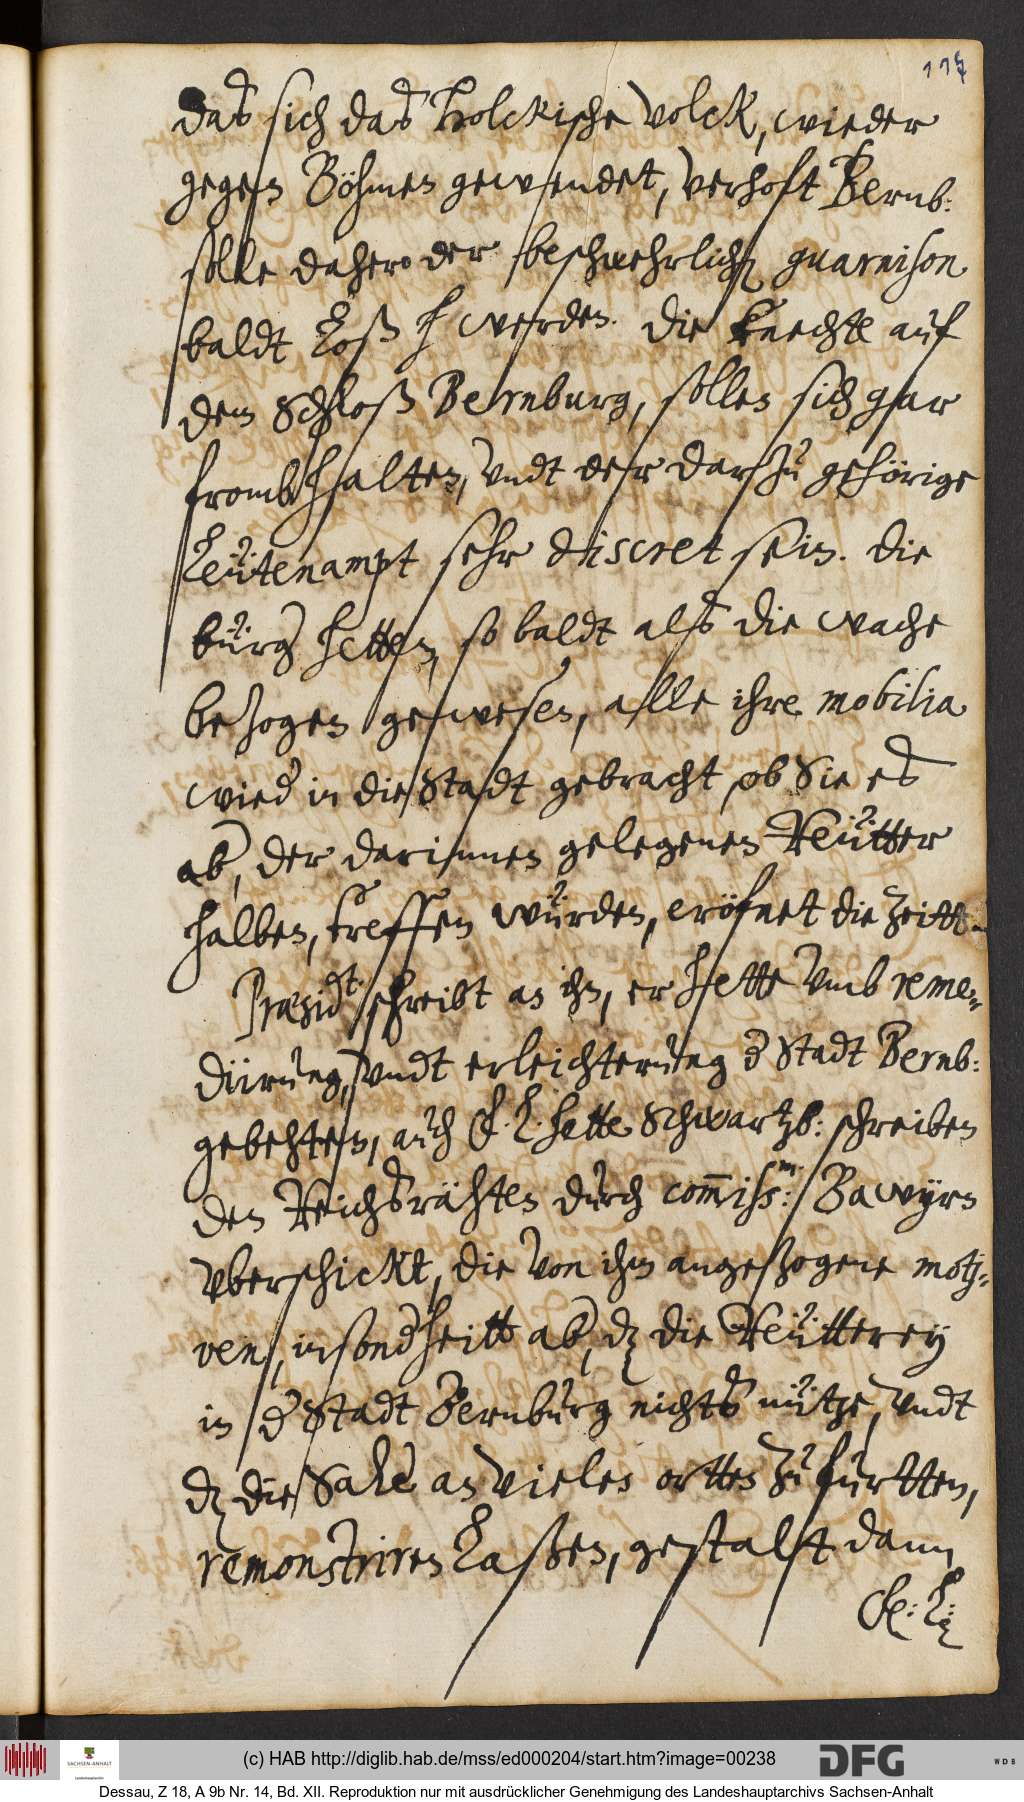 117
das sich das Holckische Volck, wieder
gegen Böhmen gewendet, verhoft Bernb:
solle dahero der beschwehrlichen guarnison
baldt Loß werden. Die knechte auf
dem Schloß Bernburg, sollen sich gar
fromb halten, vndt der darzu gehörige
Leütenampt sehr discret sein. Die
bürger hetten, so baldt alß die wache
bezogen gewesen, alle ihre mobilia
wieder in die Stadt gebracht, ob Sie es
aber, der darinnen gelegenen Reütter
halben, treffen würden, eröfnet die Zeitt.
Præsident schreibt an ihn, er hette vmb reme-
diirung, vndt erleichterung der Stadt Bernb:
gebehten, auch E. L. hette Schwartzb: schreiben
den Reichsrähten durch commissm: Bawÿrn
vberschickt, die von ihm angezogene moti-
ven, insonderheitt aber, dz die Reütterey
in der Stadt Bernburg nichts nütze, vndt
dz die Sahle an vielen ortten zu furtten,
remonstriren Laßen, gestalt dann
E: L:
(c) HAB http://diglib.hab.de/mss/ed000204/start.htm?image=00238
SACHSEN-ANHALT
Landeshauptarchiv
DFG
WDB
Dessau, Z 18, A 9b Nr. 14, Bd. XII. Reproduktion nur mit ausdrücklicher Genehmigung des Landeshauptarchivs Sachsen-Anhalt